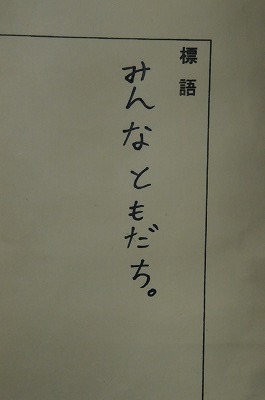 標語
みんな ともだち。